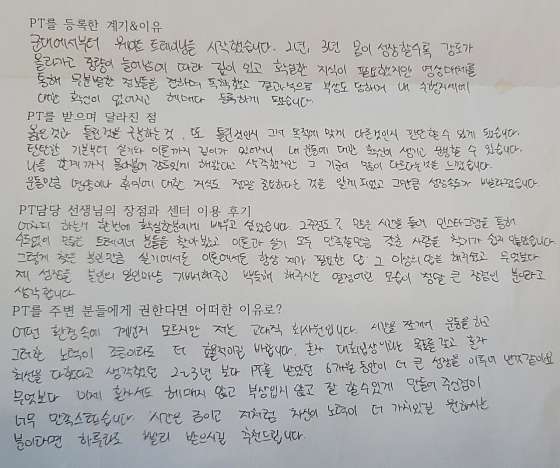 PT를 등록한 계기&이유
군대에서부터 웨이트 트레이닝을 시작했습니다. 2년, 3년 몸이 성장할수록 강도가
올라가고 중량이 늘어남에 따라 깊이 있고 확실한 지식이 필요했지만 영상매체를
통해 무분별한 정보들을 접하며 독학했고 결과적으로 부상도 당하며 내 수행자세에
대한 확신이 없어지고 헤매다 등록하게 됐습니다.
PT를 받으며 달라진 점
옳은것과 틀린것을 구분하는 것, 또 틀린것인지 그저 목적에 맞게 다른것인지 판단할 수 있게 됐습니다.
탄탄한 기본부터 실기와 이론까지 깊이가 있어져서 내 운동에 대한 확신이 생기고 설명할 수 있습니다.
나름 한계까지 몰아붙여 강도있게 해왔다고 생각했지만 그 기준이 많이 다르다는것을 느꼈습니다.
운동만큼 영양이나 휴식에 대한 지식도 정말 중요하다는 것을 알게되었고 그만큼 성장속도가 빨라졌습니다.
PT담당 선생님의 장점과 센터 이용 후기
어차피 하는거 한번에 확실한분에게 배우고 싶었습니다. 2주정도? 많은 시간을 들여 인스타그램을 통해
수도없이 많은 트레이너 분들을 찾아봤고 이론과 실기 모두 만족할만큼 갖춘 사람을 찾기가 쉽지 않았습니다.
그렇게 찾은 분인만큼 실기에서도 이론에서도 항상 제가 필요한 답 그 이상의 답을 해주셨고 무엇보다
제 성장을 본인의 일인마냥 기뻐해주고 뿌듯해 해주시는 열정어린 모습이 정말 큰 장점인 분이라고
생각합니다
PT를 주변 분들에게 권한다면 어떠한 이유로?
어떤 환경속에 계신지 모르지만 저는 교대직 회사원입니다. 시간을 쪼개어 운동을 하고
그러한 노력이 조금이라도 더 효율적이길 바랍니다. 혼자 대회입상이라는 목표를 갖고 혼자
최선을 다한다고 생각했던 2~3년 보다 PT를 받았던 6개월 동안이 더 큰 성장을 이루어 낸것 같아요
무엇보다 이제 혼자서도 헤매지 않고 부상입지 않고 잘 할수있게 만들어 주신점이
너무 만족스럽습니다. 시간은 금이고 저처럼 자신의 노력이 더 가치있길 원하시는
분이라면 하루라도 빨리 받으시길 추천드립니다.